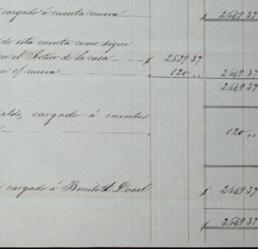 cargado á cuenta nueva $ 2669 37
de esta cuenta como sigue
el Activo de la casa $ 2529 37
en c/ nueva " 120 " " 2669 37
2669 37
saldo, cargado á cuenta " 120 " "
cargado á Benito A. Dosal $ 2669 37
$ 2669 37